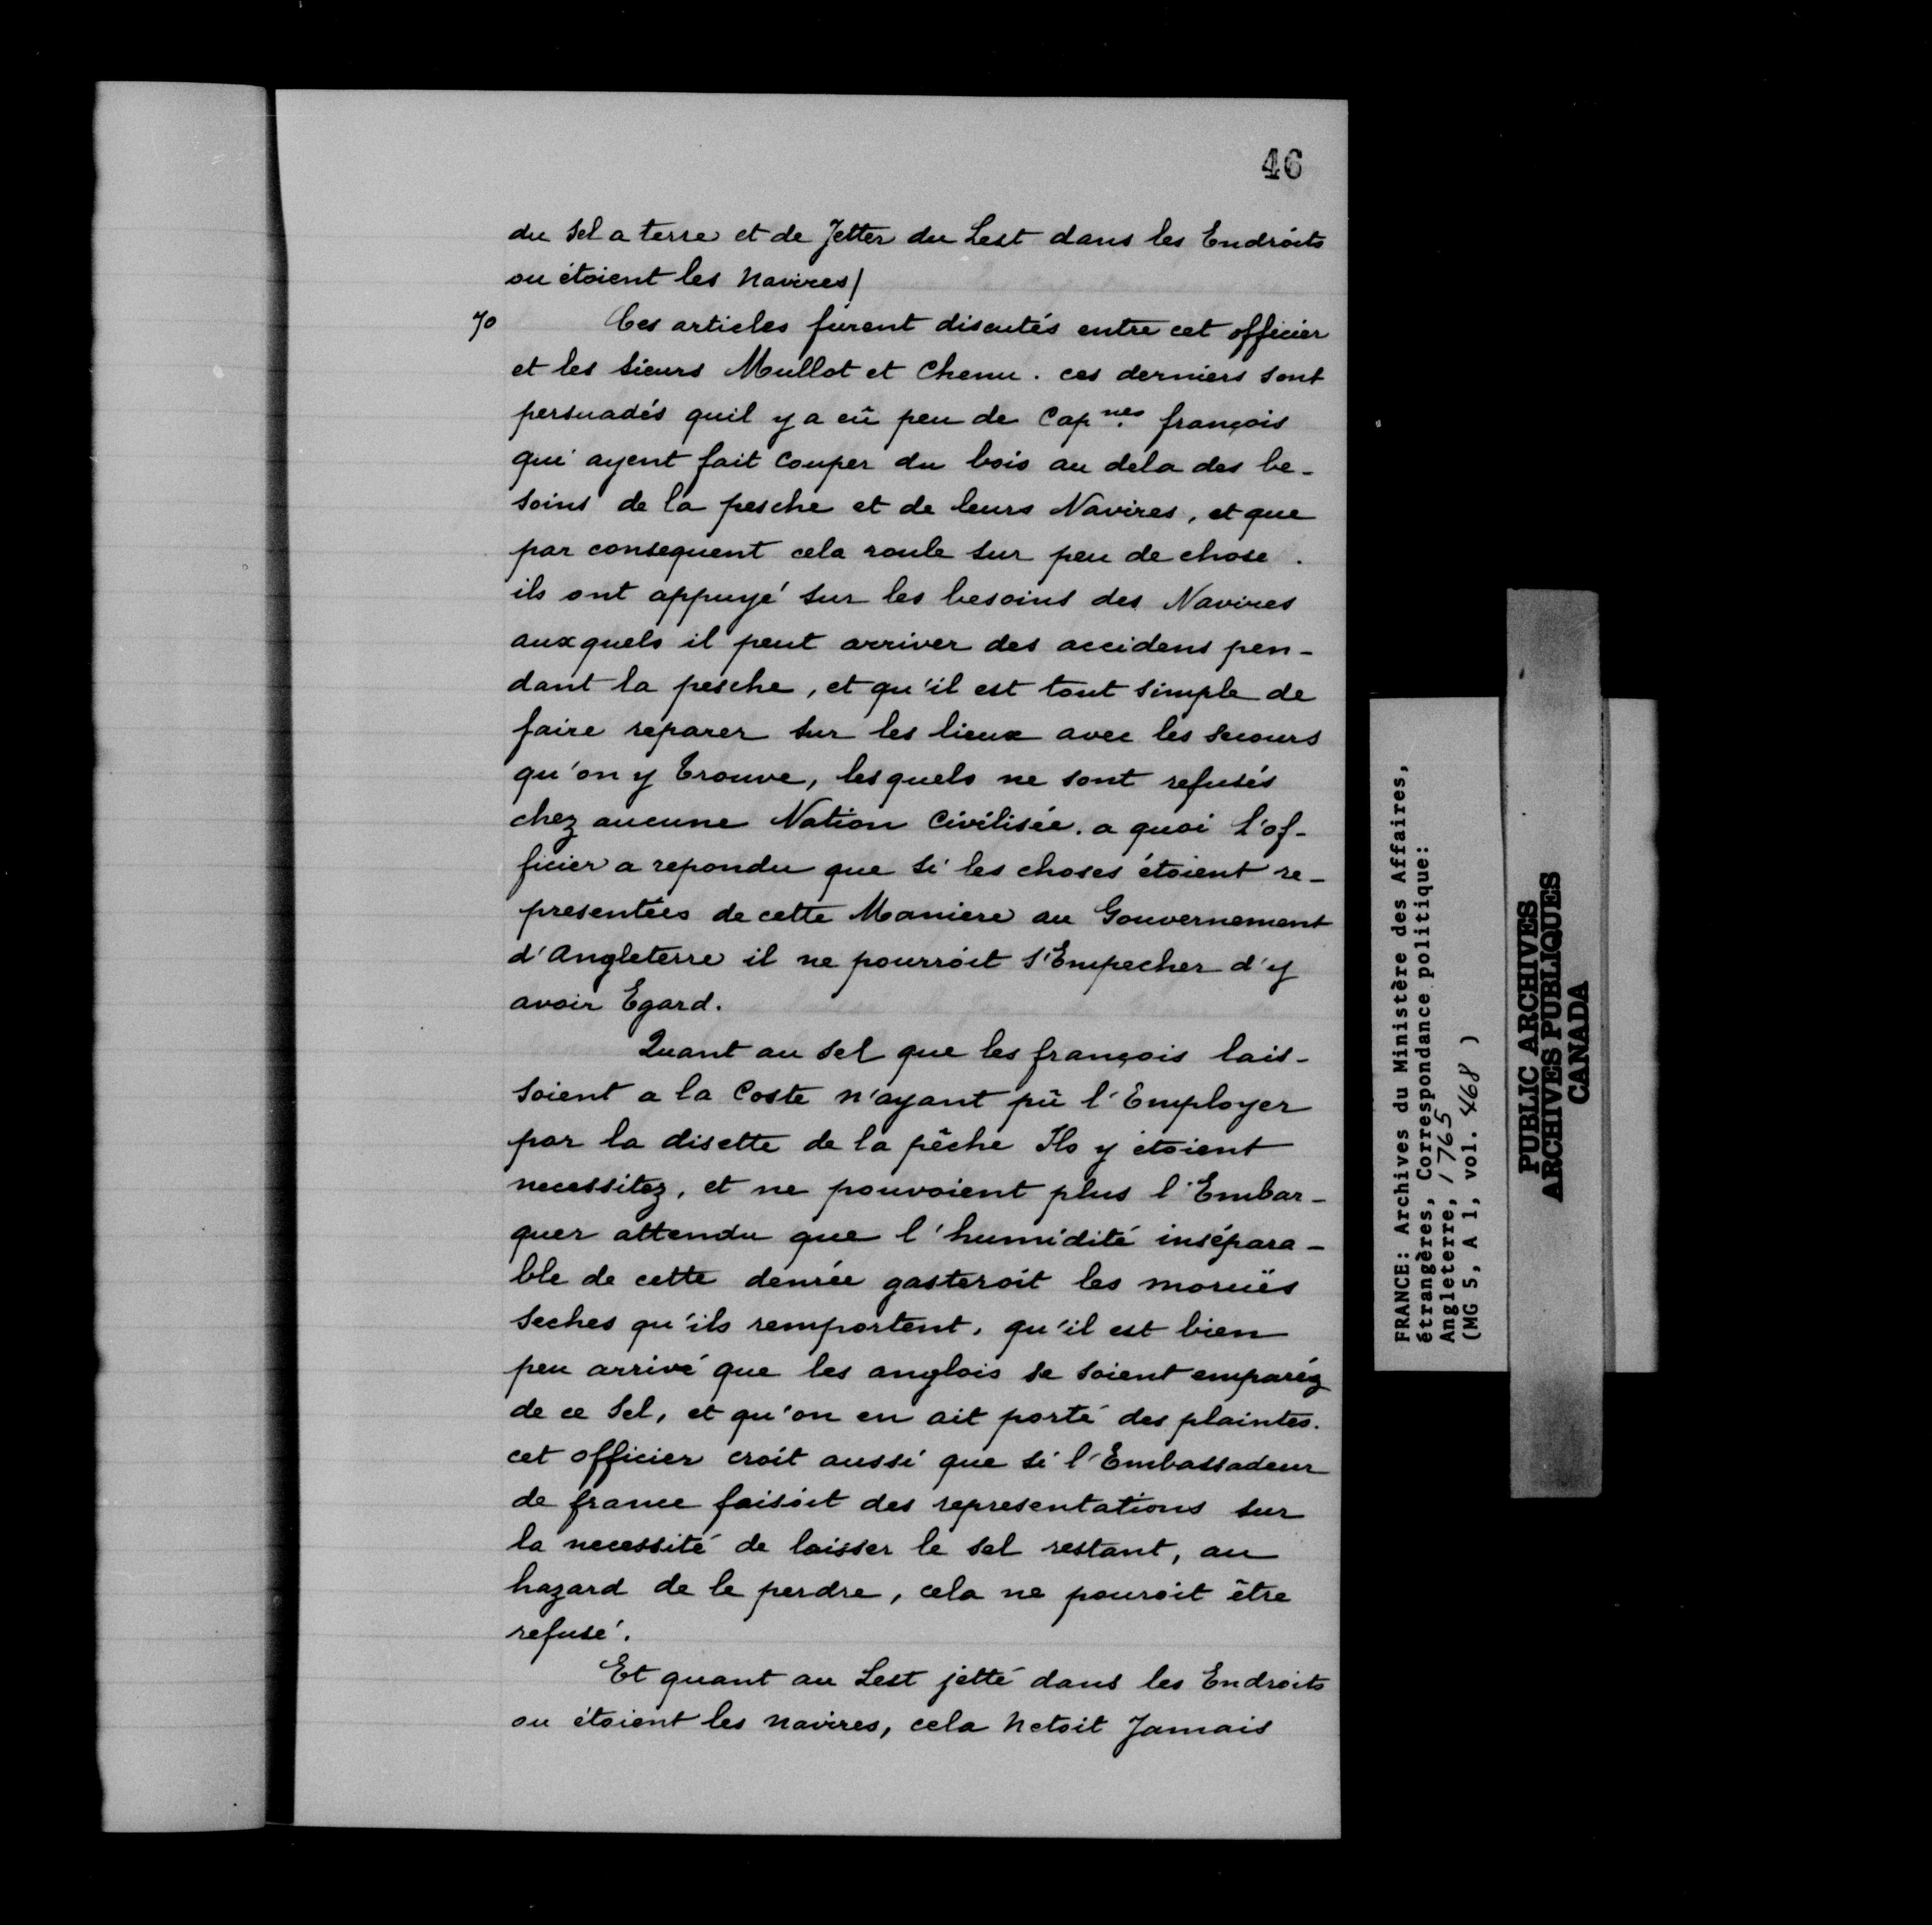 46
du Sel a terre et de Jetter du Lest dans les Endroits
ou étoient les Navires/
70
Ces articles furent discutés entre cet officier
et les Sieurs Mullot et Chenu. ces derniers sont
persuadés quil y a eû peu de Cap.nes françois
qui ayent fait Couper du bois au dela des be-
soins de la pesche et de leurs Navires, et que
par consequent cela roule sur peu de chose.
ils ont appuyé sur les besoins des Navires
auxquels il peut arriver des accidens pen-
dant la pesche, et qu'il est tout simple de
faire reparer sur les lieux avec les secours
qu'on y trouve, lesquels ne sont refusés
chez aucune Nation Civilisée. a quoi l'of-
ficier a repondu que si les choses étoient re-
presentées de cette Maniere au Gouvernement
d'Angleterre il ne pourroit s'Empecher d'y
avoir Egard.
Quant au Sel que les françois lais-
soient a la Coste n'ayant pû l'Employer
par la disette de la pêche Ils y étoient
necessitez, et ne pouvoient plus l'Embar-
quer attendu que l'humidité insépara-
ble de cette denrée gasteroit les moruës
Seches qu'ils remportent, qu'il est bien
peu arrivé que les anglois se soient emparéz
de ce Sel, et qu'on en ait porté des plaintes.
cet officier croit aussi que si l'Embassadeur
de france faisoit des representations sur
la necessité de laisser le sel restant, au
hazard de le perdre, cela ne pouroit être
refusé.
Et quant au Lest jetté dans les Endroits
ou étoient les navires, cela netoit Jamais
FRANCE: Archives du Ministère des Affaires,
étrangères, Correspondance politique:
Angleterre, 1765
(MG 5, A 1, vol. 468 )
PUBLIC ARCHIVES
ARCHIVES PUBLIQUES
CANADA